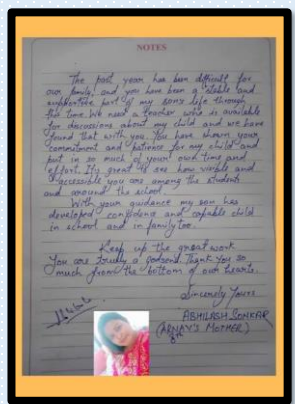 NOTES
The past year has been difficult for
our family, and you have been a stable and
supportive part of my son's life through
the time. We need a teacher who is available
for discussions about my child and we have
found that with you. You have shown your
commitment and patience for my child and
put in so much of your own time and
effort. It's great to see how visible and
accessible you are among the students
and around the school.
With your guidance my son has
developed confidence and capable child
in school and in family too.
Keep up the great work
You are truly a godsend. Thank you so
much from the bottom of our hearts.
Sincerely Yours
ABHILASH SONKAR
(ARNAV'S MOTHER)